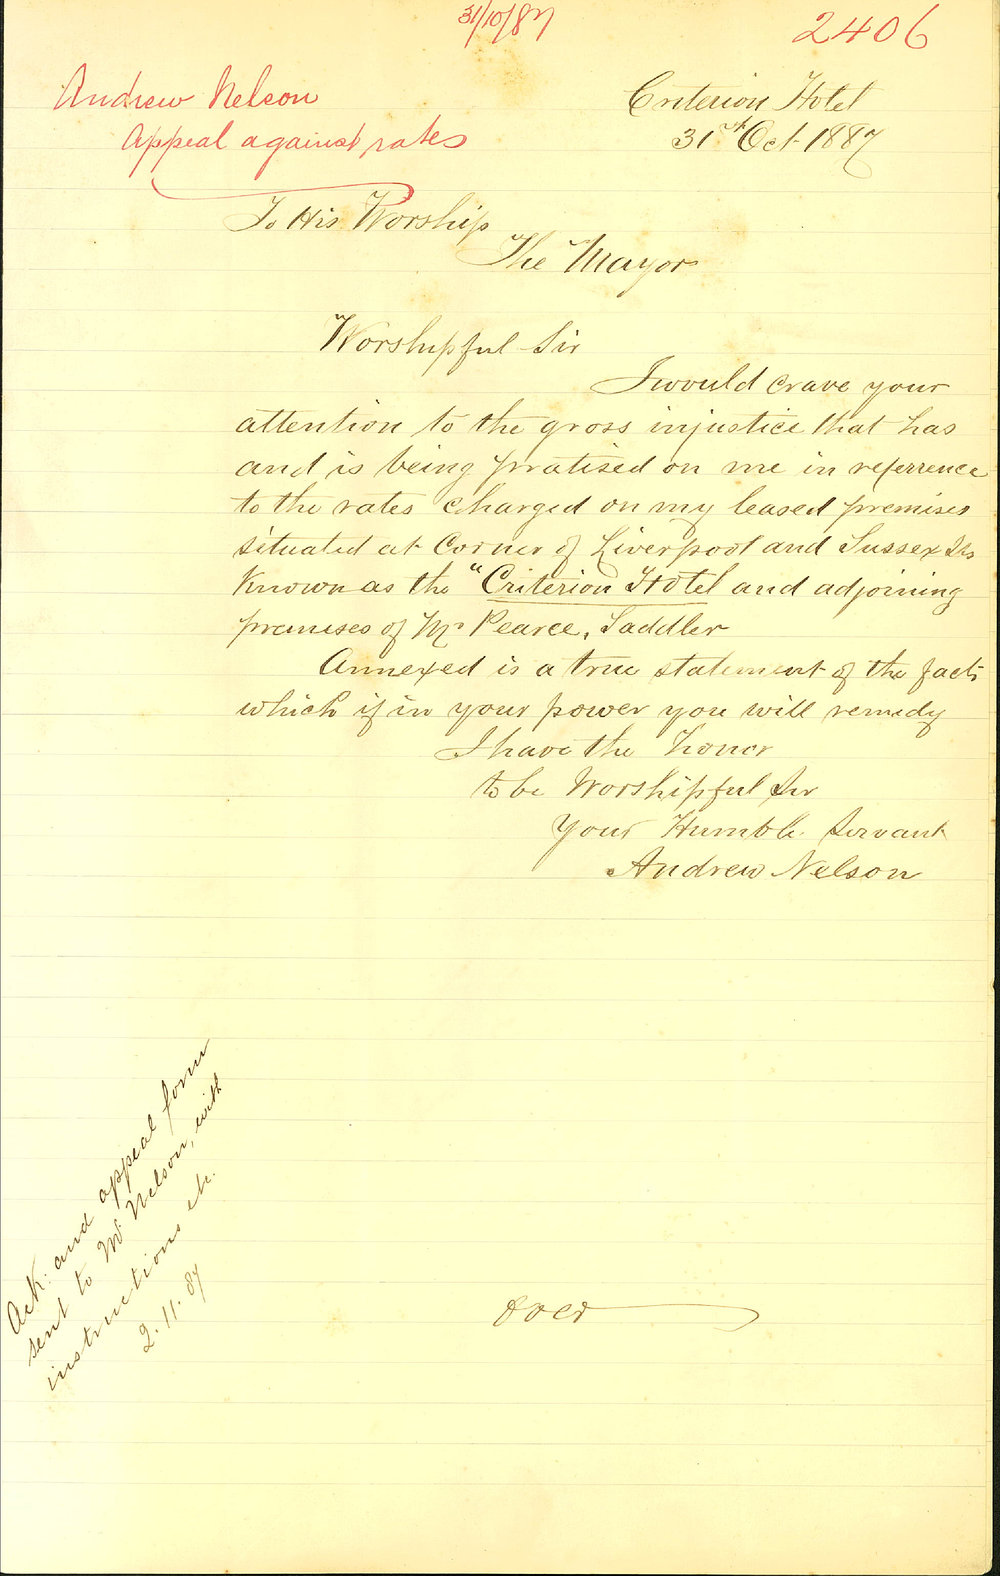 31/10/87
2406
Andrew Nelson
Appeal against rates
Criterion Hotel
31st Oct 1887
To His Worship
The Mayor
Worshipful Sir
I would crave your
attention to the gross injustice that has
and is being pratised on me in referrence
to the rates charged on my leased premises
situated at Corner of Liverpool and Sussex Sts
Known as the "Criterion Hotel and adjoining
premises of Mr Pearce, Saddler
Annexed is a true statement of the facts
which if in your power you will remedy
I have the honor
to be Worshipful Sir
Your Humble Servant
Andrew Nelson
Ack: and appeal form
sent to Mr Nelson, with
instructions etc.
2.11.87
over